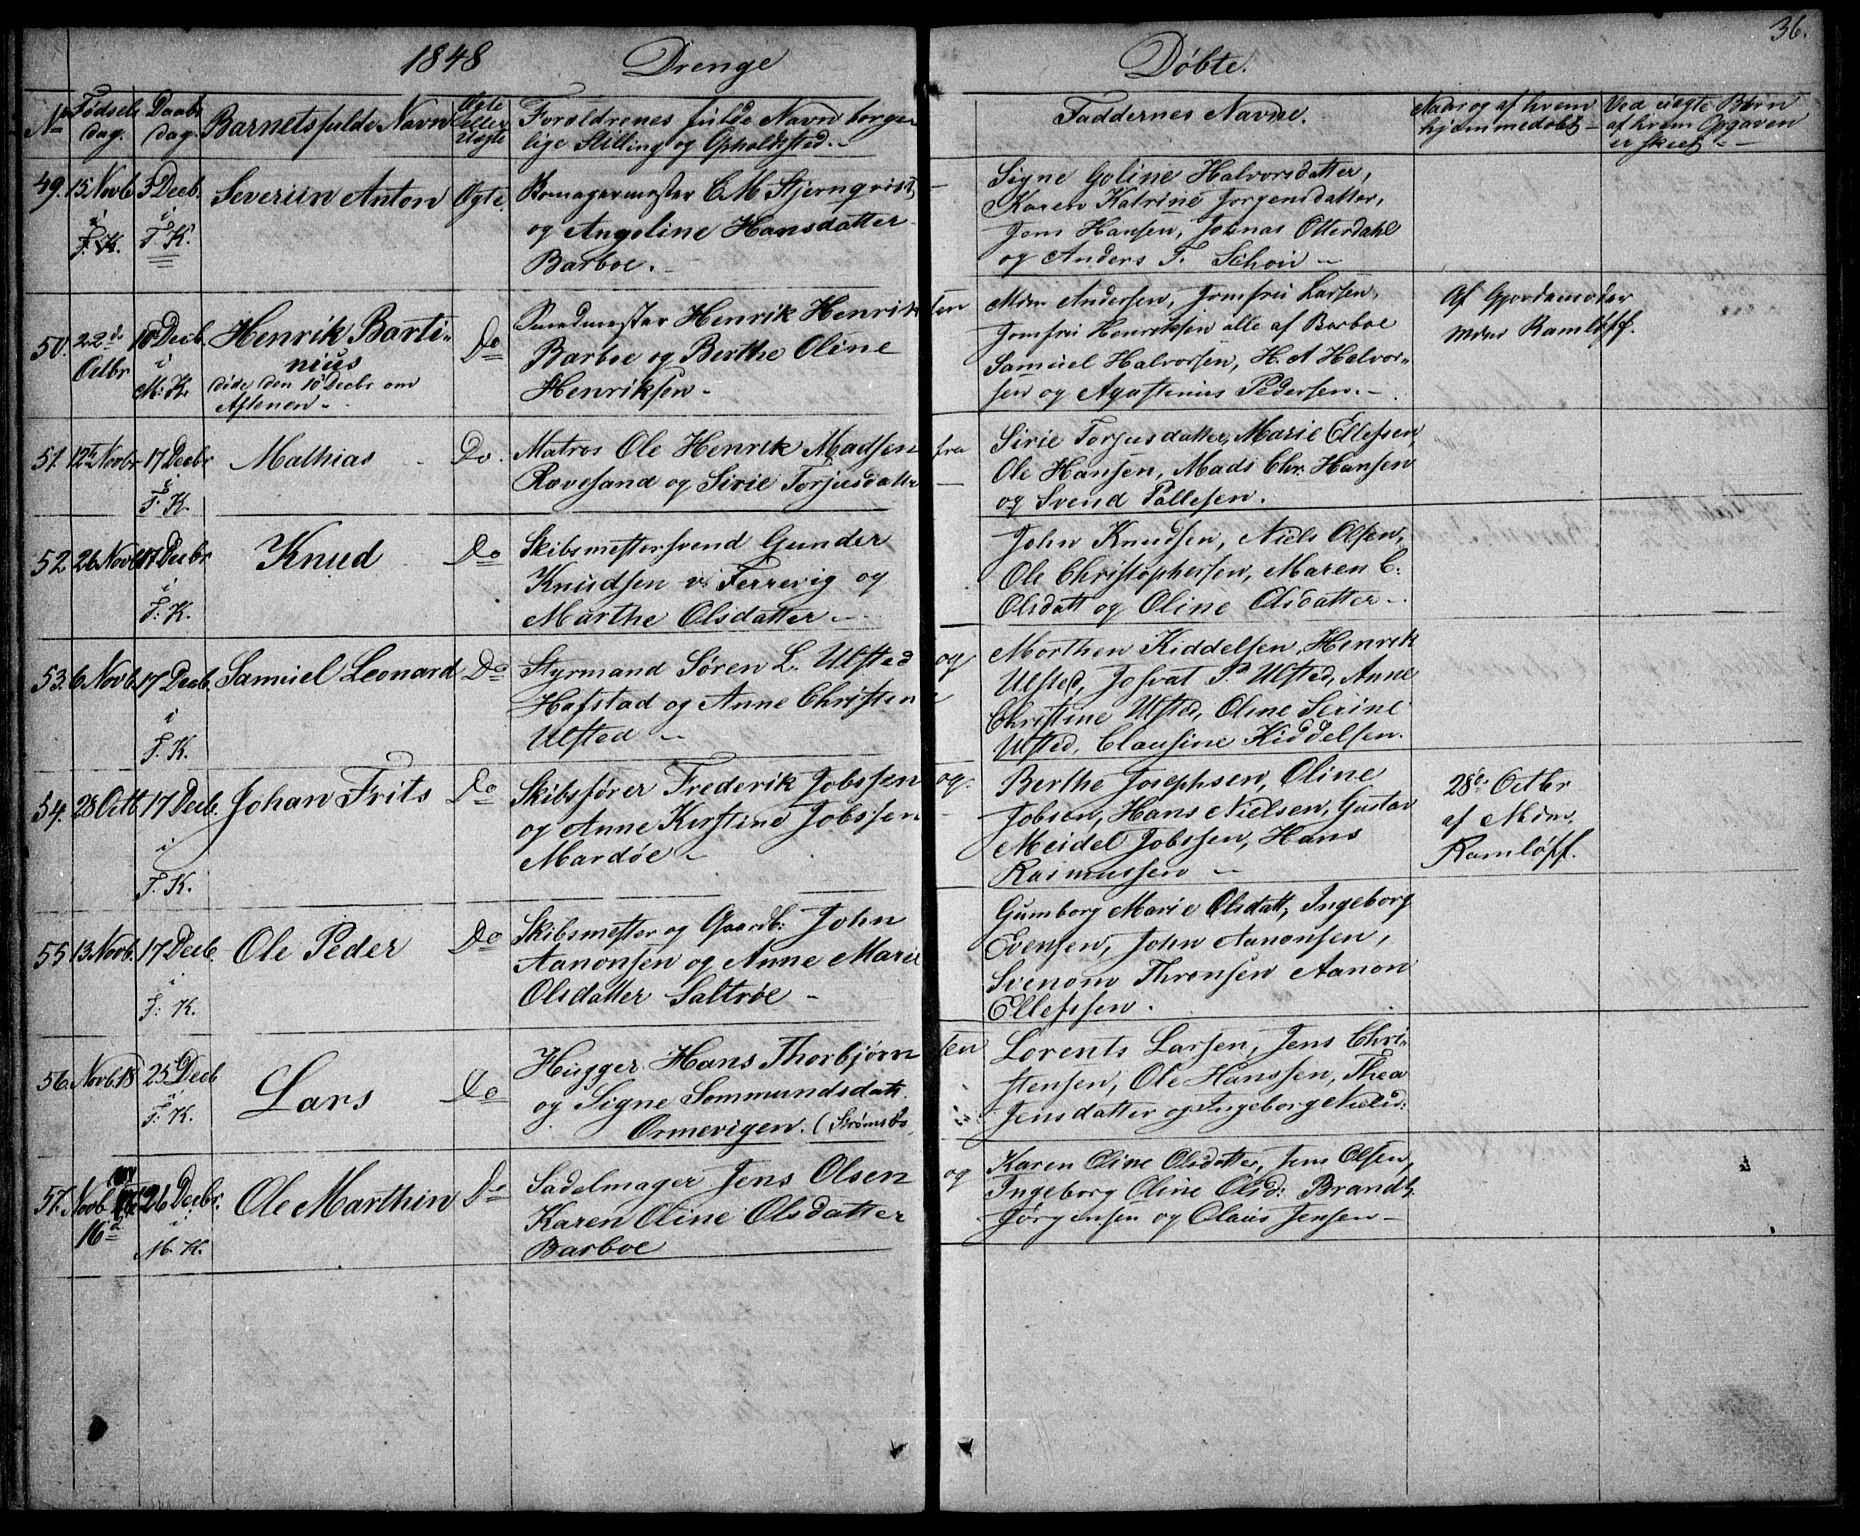 36.
1848 Drenge Døbte.
No Fødsels dag. Daabs dag. Barnets fulde Navn Ægte eller Uægte Forældrenes fulde Navn borger
lige Stilling og Opholdsted.
Faddernes Navne. Naar og af hvem hjemmedøbt Ved uægte Børn af hvem Opgaven er skeet
49. 15 Novb. i T. K. 3 Decb. i T. K. Severin Anton Ægte.
Bomagermester C. M. Stjernqvist
og Angeline Hansdatter
Barboe.
Signe Goline Halvorsdatter,
Karen Katrine Jorgensdatter,
Jens Hansen, Jonas Otterdahl
og Anders T. Schøn
50. 22 Octbr 10 Decb. i M. K. Henrik Barti-
nius
døde den 10 Decbr om
Aftenen.
Do
Smedmester Henrik Henriksen
Barboe og Berthe Oline
Henriksen.
Mdm Andersen, Jomfru Larsen,
Jomfru Henriksen alle af Barboe
Samuel Halvorsen, H. A. Halvor-
sen og Agastinius Pedersen.
Af Gjordemoder
Mdm Ramløff.
51. 12te Novbr 17 Decbr i T. K. Mathias Do.
Matros Ole Henrik Madsen fra
Ravesand og Sirie Torjusdatter
Sirie Torjusdatter, Marie Ellefsen
Ole Hansen, Mads Chr. Hansen
og Svend Pallesen.
52. 26 Novb 17 Decbr i T. K. Knud Do
Skibsmestersvend Gunder
Knudsen v. Ferrevig og
Marthe Olsdatter.
John Knudsen, Niels Olsen,
Ole Christophersen, Maren C.
Olsdatt og Oline Olsdatter
53. 6 Novb. 17 Decb. i T. K. Samuel Leonard Do
Styrmand Søren L. Ulsted og
Hafstad og Anne Christen
Ulsted
Morthen Kiddelsen, Henrik
Ulsted, Josvat P. Ulsted, Anne
Christine Ulsted, Oline Serine
Ulsted, Clausine Kiddelsen.
54. 28 Octb 17 Decb. i T. K. Johan Frits Do
Skibsfører Frederik Jobssen og
og Anne Kirstine Jobssen
Mardøe
Berthe Josephsen, Oline
Jobsen, Hans Nielsen, Gustav
Meidel Jobssen, Hans
Rasmussen
28de Octbr
af Mdm.
Ramløff.
55 13 Novb. 17 Decb. i T. K. Ole Peder Do
Skibsmester og Gaardb: John
Aanonsen og Anne Marie
Olsdatter Saltrøe
Gumborg Marie Olsdatt, Ingeborg
Evensen, John Aanonsen,
Svenom Thronsen Aanon
Ellefssen.
56. Novb. 18 25 Decb i T. K. Lars Do
Hugger Hans Thorbjørnsen
og Signe Sommundsdatt.
Ormevigen. (Strømsbo
Lorents Larsen, Jens Chri-
stensen, Ole Hanssen, Thea
Jensdatter og Ingeborg Nielsd:
57. Novb. 16de 26 Decbr. i M. K. Ole Marthin Do
Sadelmager Jens Olsen og
Karen Oline Olsdatter
Barboe
Karen Oline Olsdatter, Jens Olsen,
Ingeborg Oline Olsd: Brandt,
Jørgensen og Claus Jensen